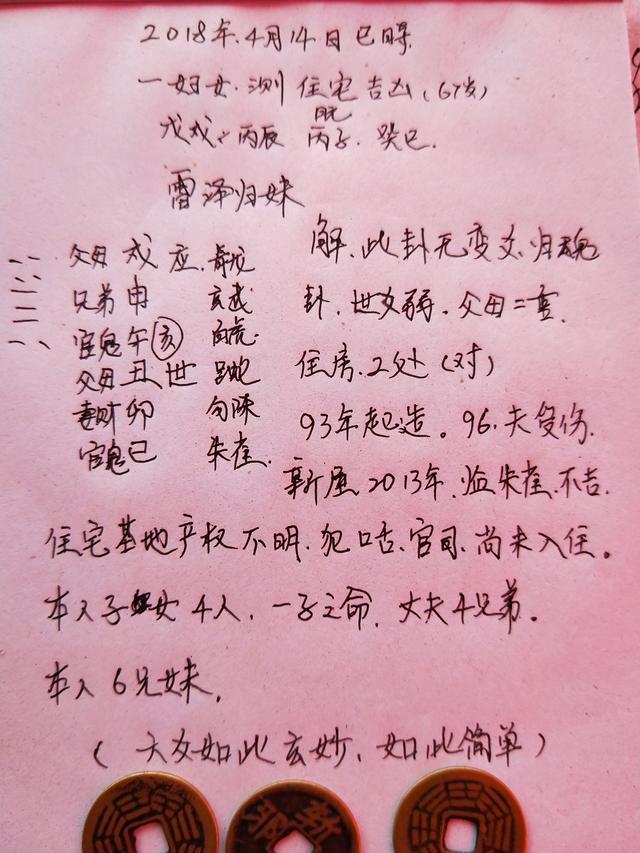 2018年.4月14日巳時
一妇女.测住宅吉凶(67岁)
戊戌.丙辰 丙子.癸巳.
雷泽归妹
父母 戌 应.青龙
兄弟 申 玄武
官鬼 午 亥 白虎
父母 丑 世
妻财 卯 勾陈
官鬼 巳 朱雀.
解.此卦无变爻.归魂
卦.世爻弱.父母二重
住房.2处(对)
93年起造。96.夫受伤.
新屋.2013年.临朱雀.不吉.
住宅基地产权不明.犯口舌.官司.尚未入住。
本人子女4人,一子之命,丈夫4兄弟。
本人6兄妹.
(大爻如此玄妙.如此简单)